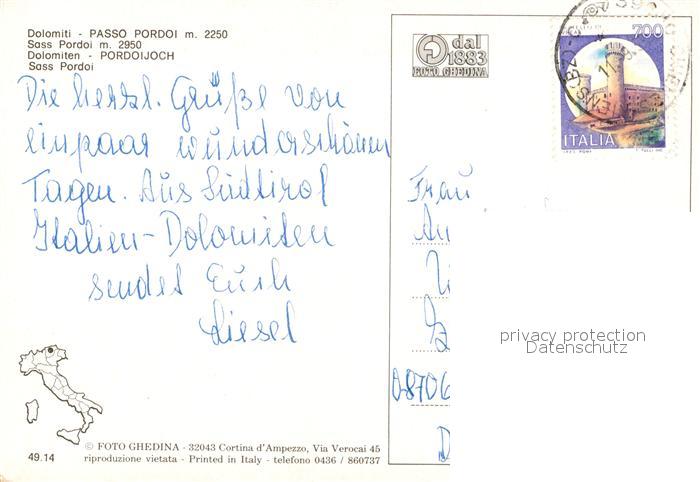 Dolomiti - PASSO PORDOI m. 2250
Sass Pordoi m. 2950
Dolomiten - PORDOIJOCH
Sass Pordoi
Die herzl. Grüße von
einpaar wunderschönen
Tagen. Aus Südtirol
Italien-Dolomiten
sendet Euch
Liesel
49.14
© FOTO GHEDINA - 32043 Cortina d'Ampezzo, Via Verocai 45
riproduzione vietata - Printed in Italy - telefono 0436 / 860737
dal
1883
FOTO GHEDINA
700
ITALIA
Frau
08706
privacy protection
Datenschutz